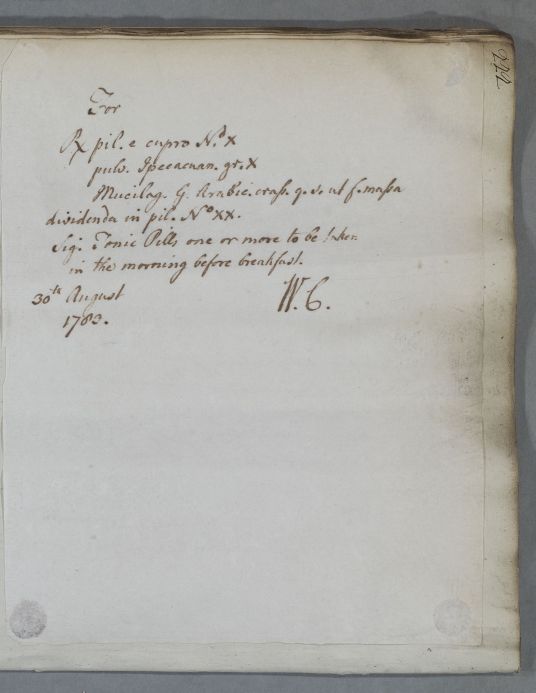 222
For
℞ pil. e cupro No. X
pulv. Ipecacuan. gr. X
Mucilag. G. Arabic. crass. q. s. ut f. massa
dividenda in pil. No. XX.
Sig. Tonic Pills one or more to be taken
in the morning before breakfast.
30th August W. C.
1783.